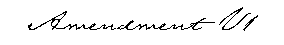 Amendment VI